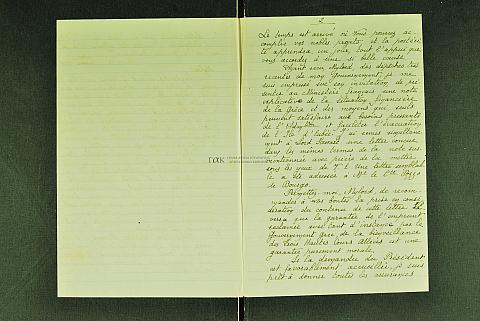 2
Le temps est arrivé où Vous pourrez ac-
complir vos nobles projets, et la postéri-
té apprendra un jour tout l'appui que
vous accordez à une si belle cause.
Ayant reçu, Mylord, des dépêches très
récentes de mon Gouvernement, je me
suis empressé sur son invitation de pré-
senter au Ministère français une note
explicative de la situation financière
de la Grèce et des moyens qui seuls
peuvent satisfaire aux besoins pressents
de l' et faciliter l'évacuation
de l'
dans les mêmes termes de la note sus-
mentionnée avec prière de la mettre
sous les yeux de une lettre semblab-
le a été adressée à Mr. le Cte Pozzo
de Borgo.
Permettez-moi, Mylord, de recom-
mander à vos bontés la prise en consi-
dération du contenu de cette lettre.
verra que la garantie de l'emprunt
réclamée avec tant d'instance par le
Gouvernement grec de la bienveillance
des trois Hautes Cours Alliées est une
garantie purement morale.
Si la demande du Président
est favorablement accueillie, je suis
prêt à donner toutes les assurances
ΓΑΚ